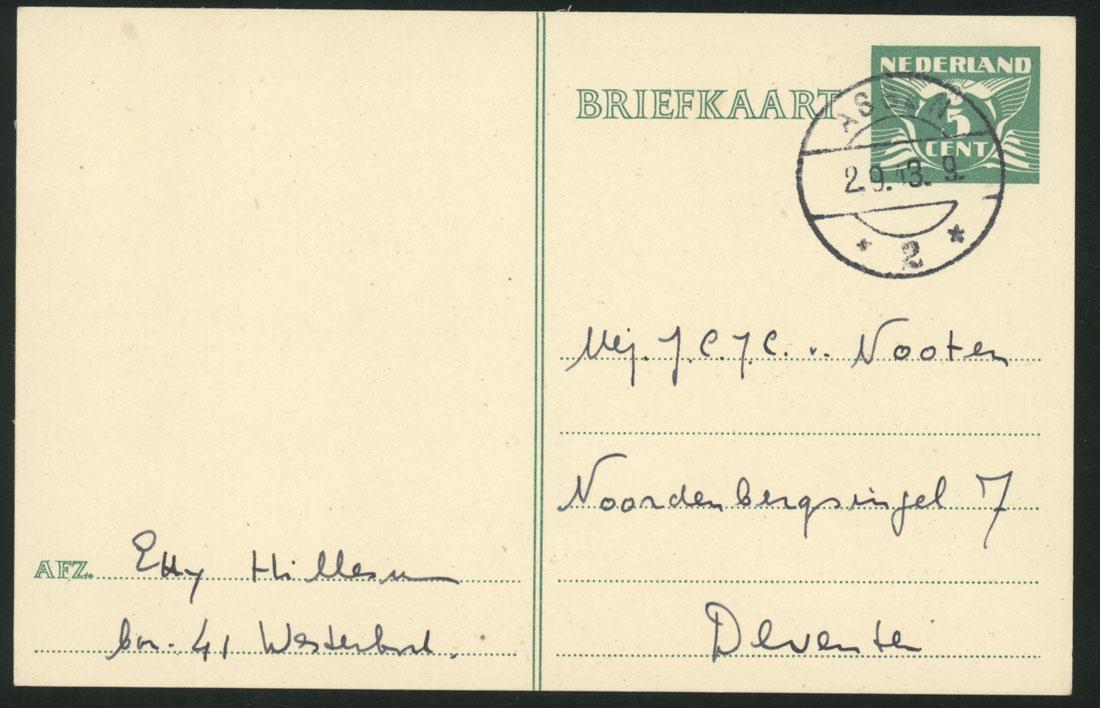 NEDERLAND
5
CENT
BRIEFKAART
ASSEN
2.9.43. 9.
* 2 *
Mej. J.C.J.C. v. Nooten
Noordenbergsingel 7
Deventer
AFZ. Etty Hillesum
bar. 41 Westerbork.